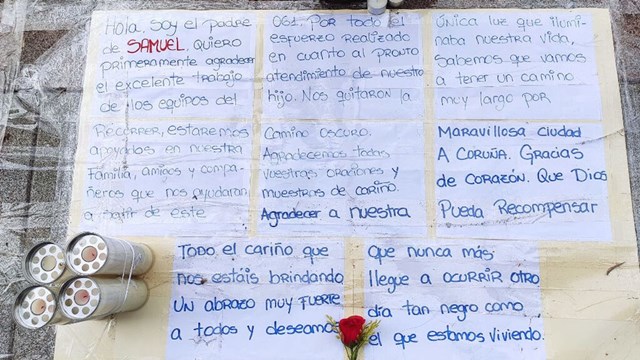 Hola, soy el padre
de SAMUEL. Quiero
primeramente agradecer
el excelente trabajo
de los equipos del
061. Por todo el
esfuerzo realizado
en cuanto al pronto
atendimiento de nuestro
hijo. Nos quitaron la
única luz que ilumi
naba nuestra vida,
Sabemos que vamos
a tener un camino
muy largo por
Recorrer, estaremos
apoyados en nuestra
Familia, amigos y compa-
ñeros que nos ayudaran
a salir de este
Camino oscuro.
Agradecemos todas
vuestras oraciones y
muestras de cariño.
Agradecer a nuestra
Maravillosa ciudad
A CORUÑA. Gracias
de corazón. Que Dios
Pueda Recompensar
TODO el cariño que
nos estáis brindando
UN ABRAZO MUY FUERTE
a todos y deseamos
que nunca más
llegue a OCURRIR OTRO
día tan negro como
el que estamos viviendo.